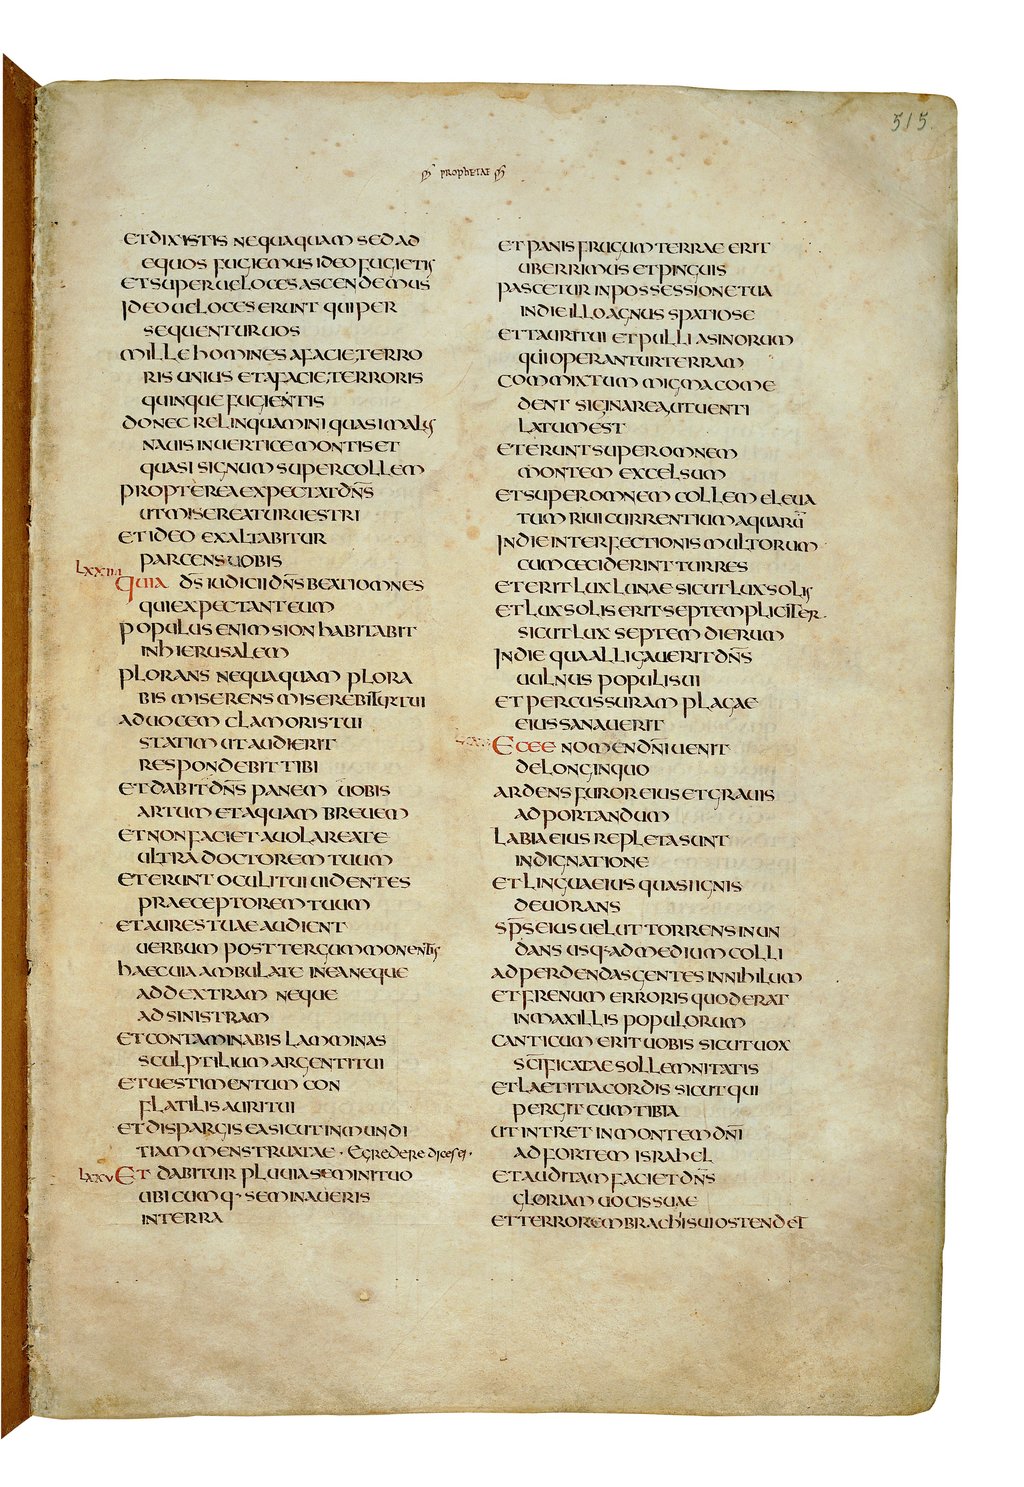 515.
PROPHETAE
ET DIXISTIS NEQUAQUAM SED AD
EQUOS FUGIEMUS IDEO FUGIETIS
ET SUPER UELOCES ASCENDEMUS
IDEO UELOCES ERUNT QUI PER
SEQUENTUR UOS
MILLE HOMINES A FACIE TERRO
RIS UNIUS ET A FACIE TERRORIS
QUINQUE FUGIENTIS
DONEC RELINQUAMINI QUASI MALUS
NAUIS IN UERTICE MONTIS ET
QUASI SIGNUM SUPER COLLEM
PROPTEREA EXPECTAT DN̄S
UT MISEREATUR UESTRI
ET IDEO EXALTABITUR
PARCENS UOBIS
LXXIIII
QUIA D̄S IUDICII DN̄S BEATI OMNES
QUI EXPECTANT EUM
POPULUS ENIM SION HABITABIT
IN HIERUSALEM
PLORANS NEQUAQUAM PLORA
BIS MISERENS MISEREBITUR TUI
AD UOCEM CLAMORIS TUI
STATIM UT AUDIERIT
RESPONDEBIT TIBI
ET DABIT DN̄S PANEM UOBIS
ARTUM ET AQUAM BREUEM
ET NON FACIET AUOLARE A TE
ULTRA DOCTOREM TUUM
ET ERUNT OCULI TUI UIDENTES
PRAECEPTOREM TUUM
ET AURES TUAE AUDIENT
UERBUM POST TERGUM MONENTIS
HAEC UIA AMBULATE IN EA NEQUE
AD DEXTRAM NEQUE
AD SINISTRAM
ET CONTAMINABIS LAMMINAS
SCULPTILIUM ARGENTI TUI
ET UESTIMENTUM CON
FLATILIS AURI TUI
ET DISPARGIS EA SICUT INMUNDI
TIAM MENSTRUATAE · EGREDERE DICES EI ·
LXXV ET DABITUR PLUUIA SEMINI TUO
UBICUMQ· SEMINAUERIS
IN TERRA
ET PANIS FRUGUM TERRAE ERIT
UBERRIMUS ET PINGUIS
PASCETUR IN POSSESSIONE TUA
IN DIE ILLO AGNUS SPATIOSE
ET TAURI TUI ET PULLI ASINORUM
QUI OPERANTUR TERRAM
COMMIXTUM MIGMA COME
DENT SIC IN AREA UT UENTI
LATUM EST
ET ERUNT SUPER OMNEM
MONTEM EXCELSUM
ET SUPER OMNEM COLLEM ELEUA
TUM RIUI CURRENTIUM AQUARŪ
IN DIE INTERFECTIONIS MULTORUM
CUM CECIDERINT TURRES
ET ERIT LUX LUNAE SICUT LUX SOLIS
ET LUX SOLIS ERIT SEPTEMPLICITER
SICUT LUX SEPTEM DIERUM
IN DIE QUA ALLIGAUERIT DN̄S
UULNUS POPULI SUI
ET PERCUSSURAM PLAGAE
EIUS SANAUERIT
ECCE NOMEN DN̄I UENIT
DE LONGINQUO
ARDENS FUROR EIUS ET GRAUIS
AD PORTANDUM
LABIA EIUS REPLETA SUNT
INDIGNATIONE
ET LINGUA EIUS QUASI IGNIS
DEUORANS
SP̄S EIUS UELUT TORRENS INUN
DANS USQ· AD MEDIUM COLLI
AD PERDENDAS GENTES IN NIHILUM
ET FRENUM ERRORIS QUOD ERAT
IN MAXILLIS POPULORUM
CANTICUM ERIT UOBIS SICUT UOX
SC̄IFICATAE SOLLEMNITATIS
ET LAETITIA CORDIS SICUT QUI
PERGIT CUM TIBIA
UT INTRET IN MONTEM DN̄I
AD FORTEM ISRAHEL
ET AUDITAM FACIET DN̄S
GLORIAM UOCIS SUAE
ET TERROREM BRACHII SUI OSTENDET